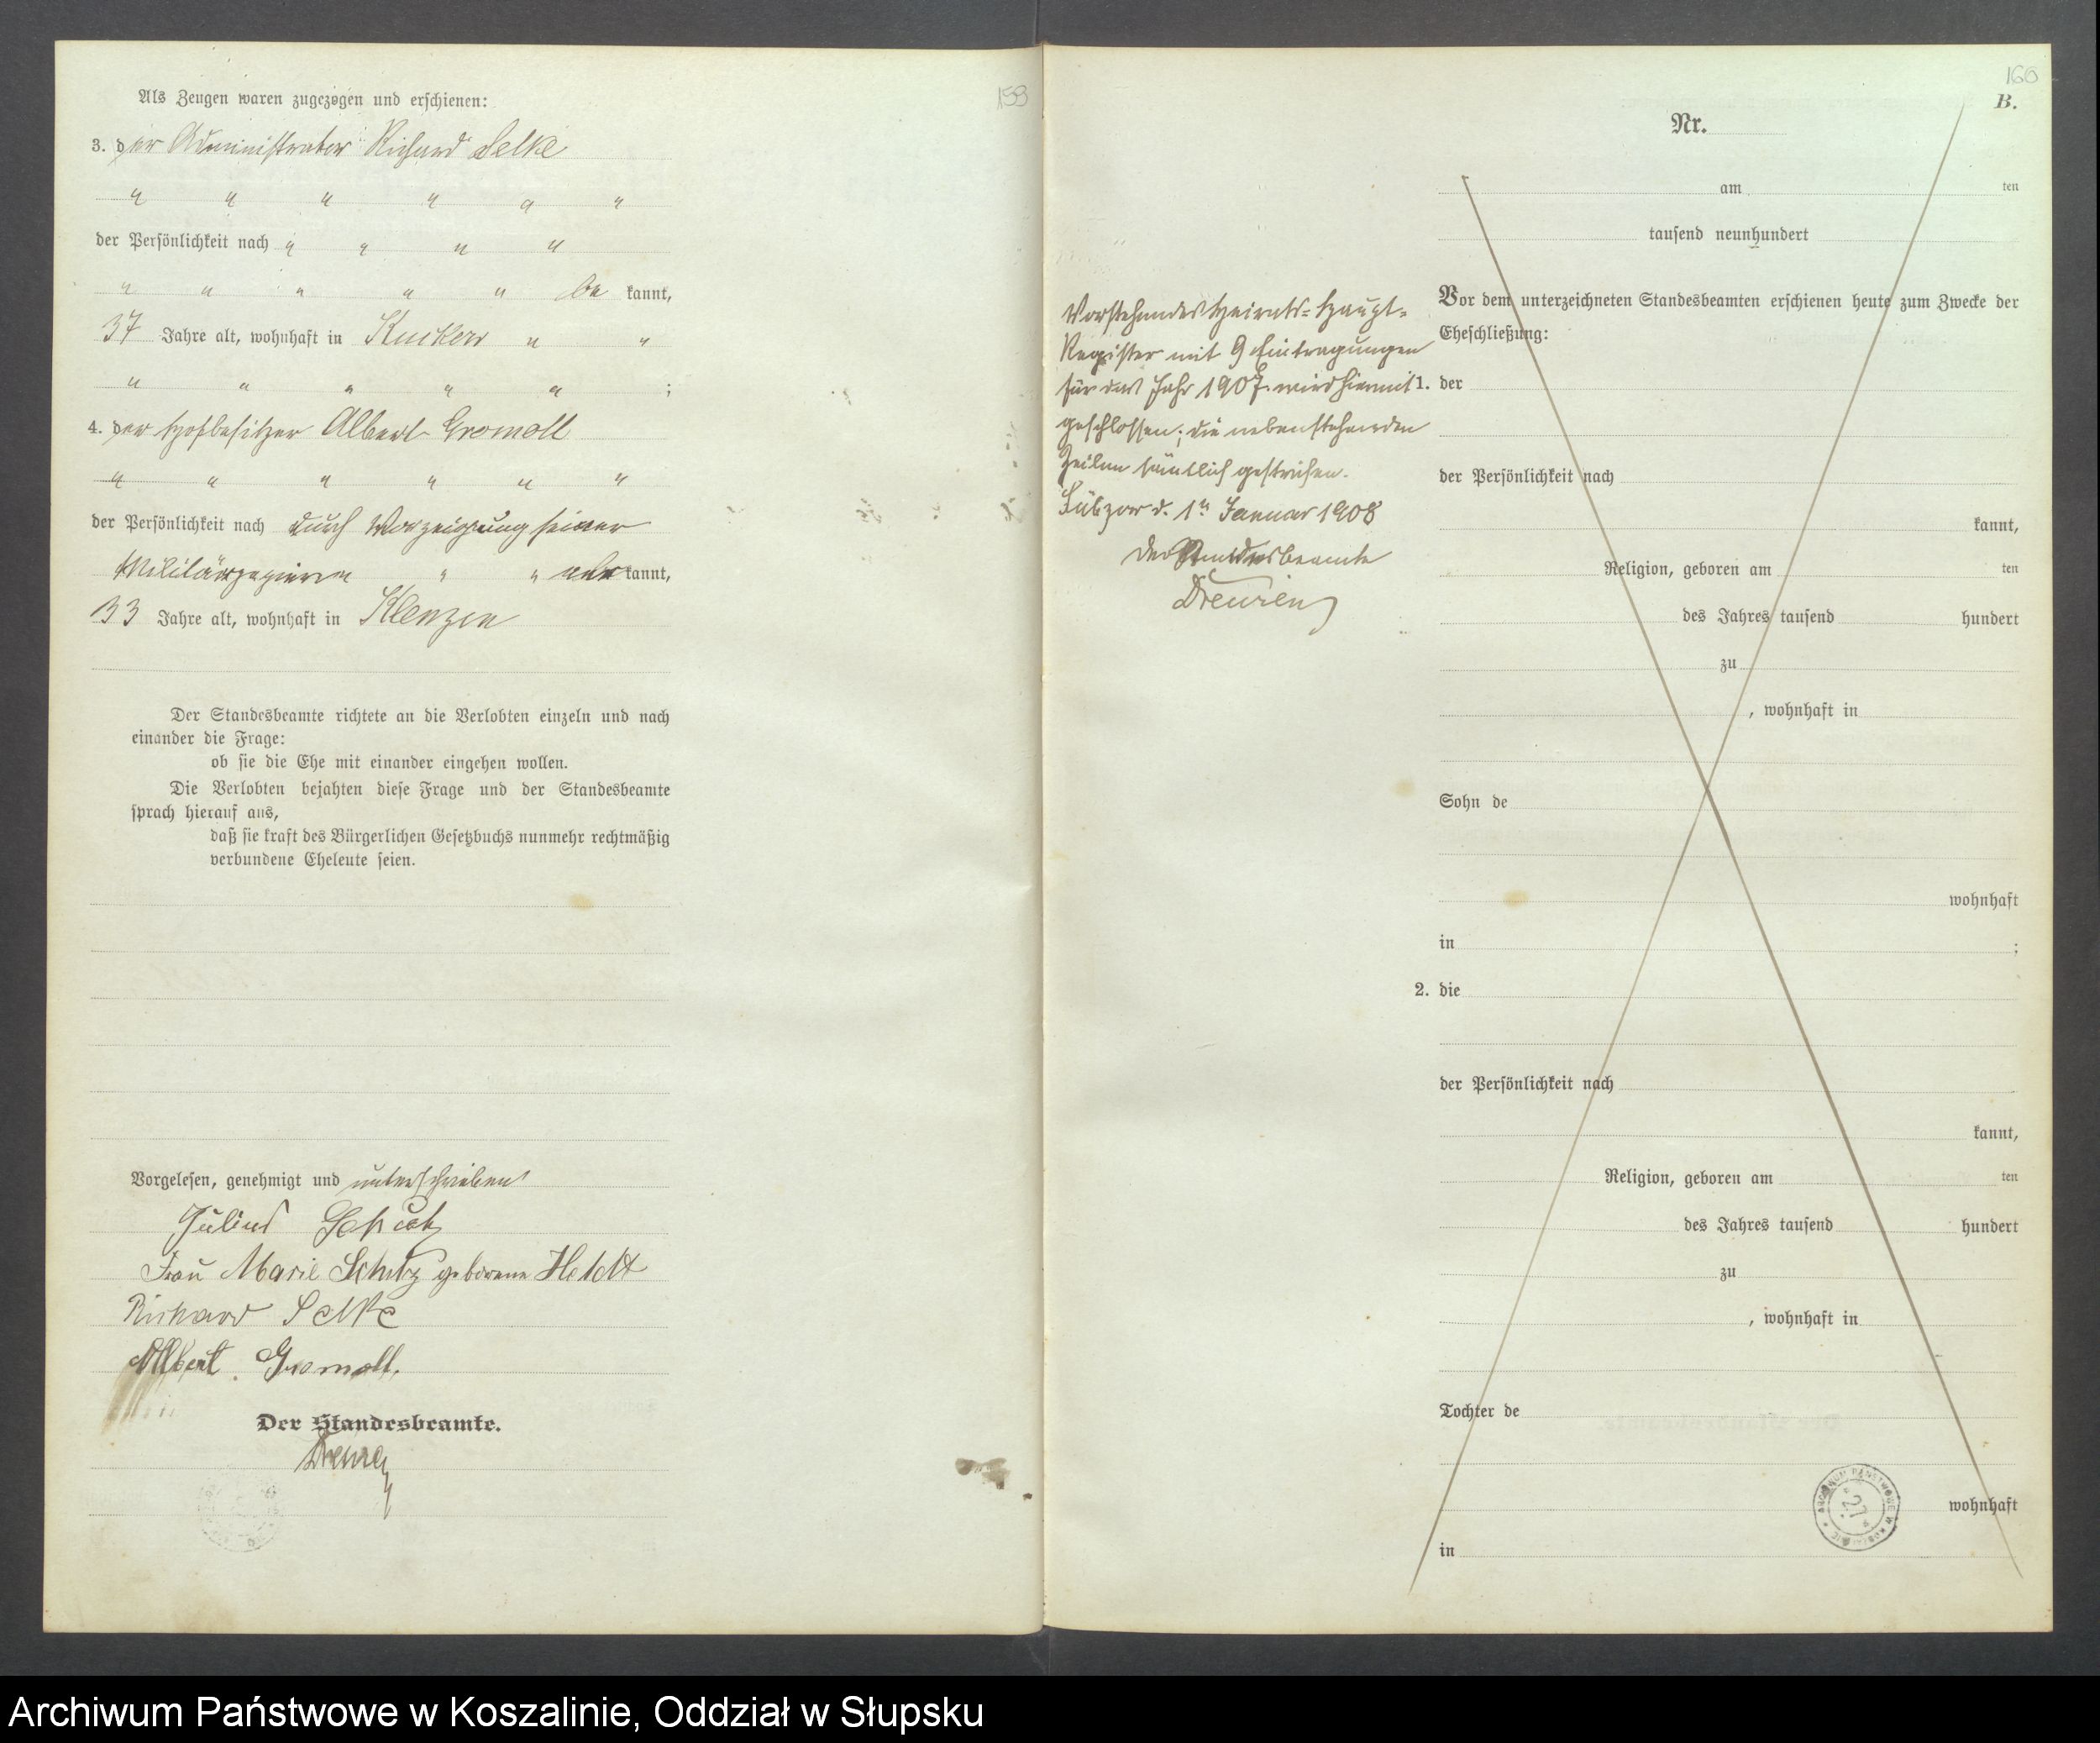 159
Als Zeugen waren zugezogen und erschienen:
3. der Administrator Richard Selke
" " " " " "
der Persönlichkeit nach " " " "
" " " " " be kannt,
37 Jahre alt, wohnhaft in Kuckow " "
" " " " " ;
4. der Hofbesitzer Albert Gromoll
" " " " " "
der Persönlichkeit nach durch Vorzeigung seiner
Militärpapieren " " kannt,
33 Jahre alt, wohnhaft in Klenzin
Der Standesbeamte richtete an die Verlobten einzeln und nach
einander die Frage:
ob sie die Ehe mit einander eingehen wollen.
Die Verlobten bejahten diese Frage und der Standesbeamte
sprach hierauf aus,
daß sie kraft des Bürgerlichen Gesetzbuchs nunmehr rechtmäßig
verbundene Eheleute seien.
Vorgelesen, genehmigt und unterschrieben
Julius
Frau Marie Schutz geborene Heldt
Richard Selke
Albert Gromoll.
Der Standesbeamte.
160
B.
Nr.
am ten
tausend neunhundert
Vor dem unterzeichneten Standesbeamten erschienen heute zum Zwecke der
Eheschließung:
1. der
der Persönlichkeit nach
kannt,
Religion, geboren am ten
des Jahres tausend hundert
zu
, wohnhaft in
Sohn de
wohnhaft
in ;
2. die
der Persönlichkeit nach
kannt,
Religion, geboren am ten
des Jahres tausend hundert
zu
, wohnhaft in
Tochter de
wohnhaft
in
Vorstehendes Heirats-Haupt-
Register mit 9 Eintragungen
für das Jahr 1907 wird hiermit
geschlossen; die nebenstehenden
Zeilen sämtlich gestrichen.
Lübzow d. 1n Januar 1908
Der Standesbeamte
ARCHIWUM PAŃSTWOWE W KOSZALINIE
27
Archiwum Państwowe w Koszalinie, Oddział w Słupsku